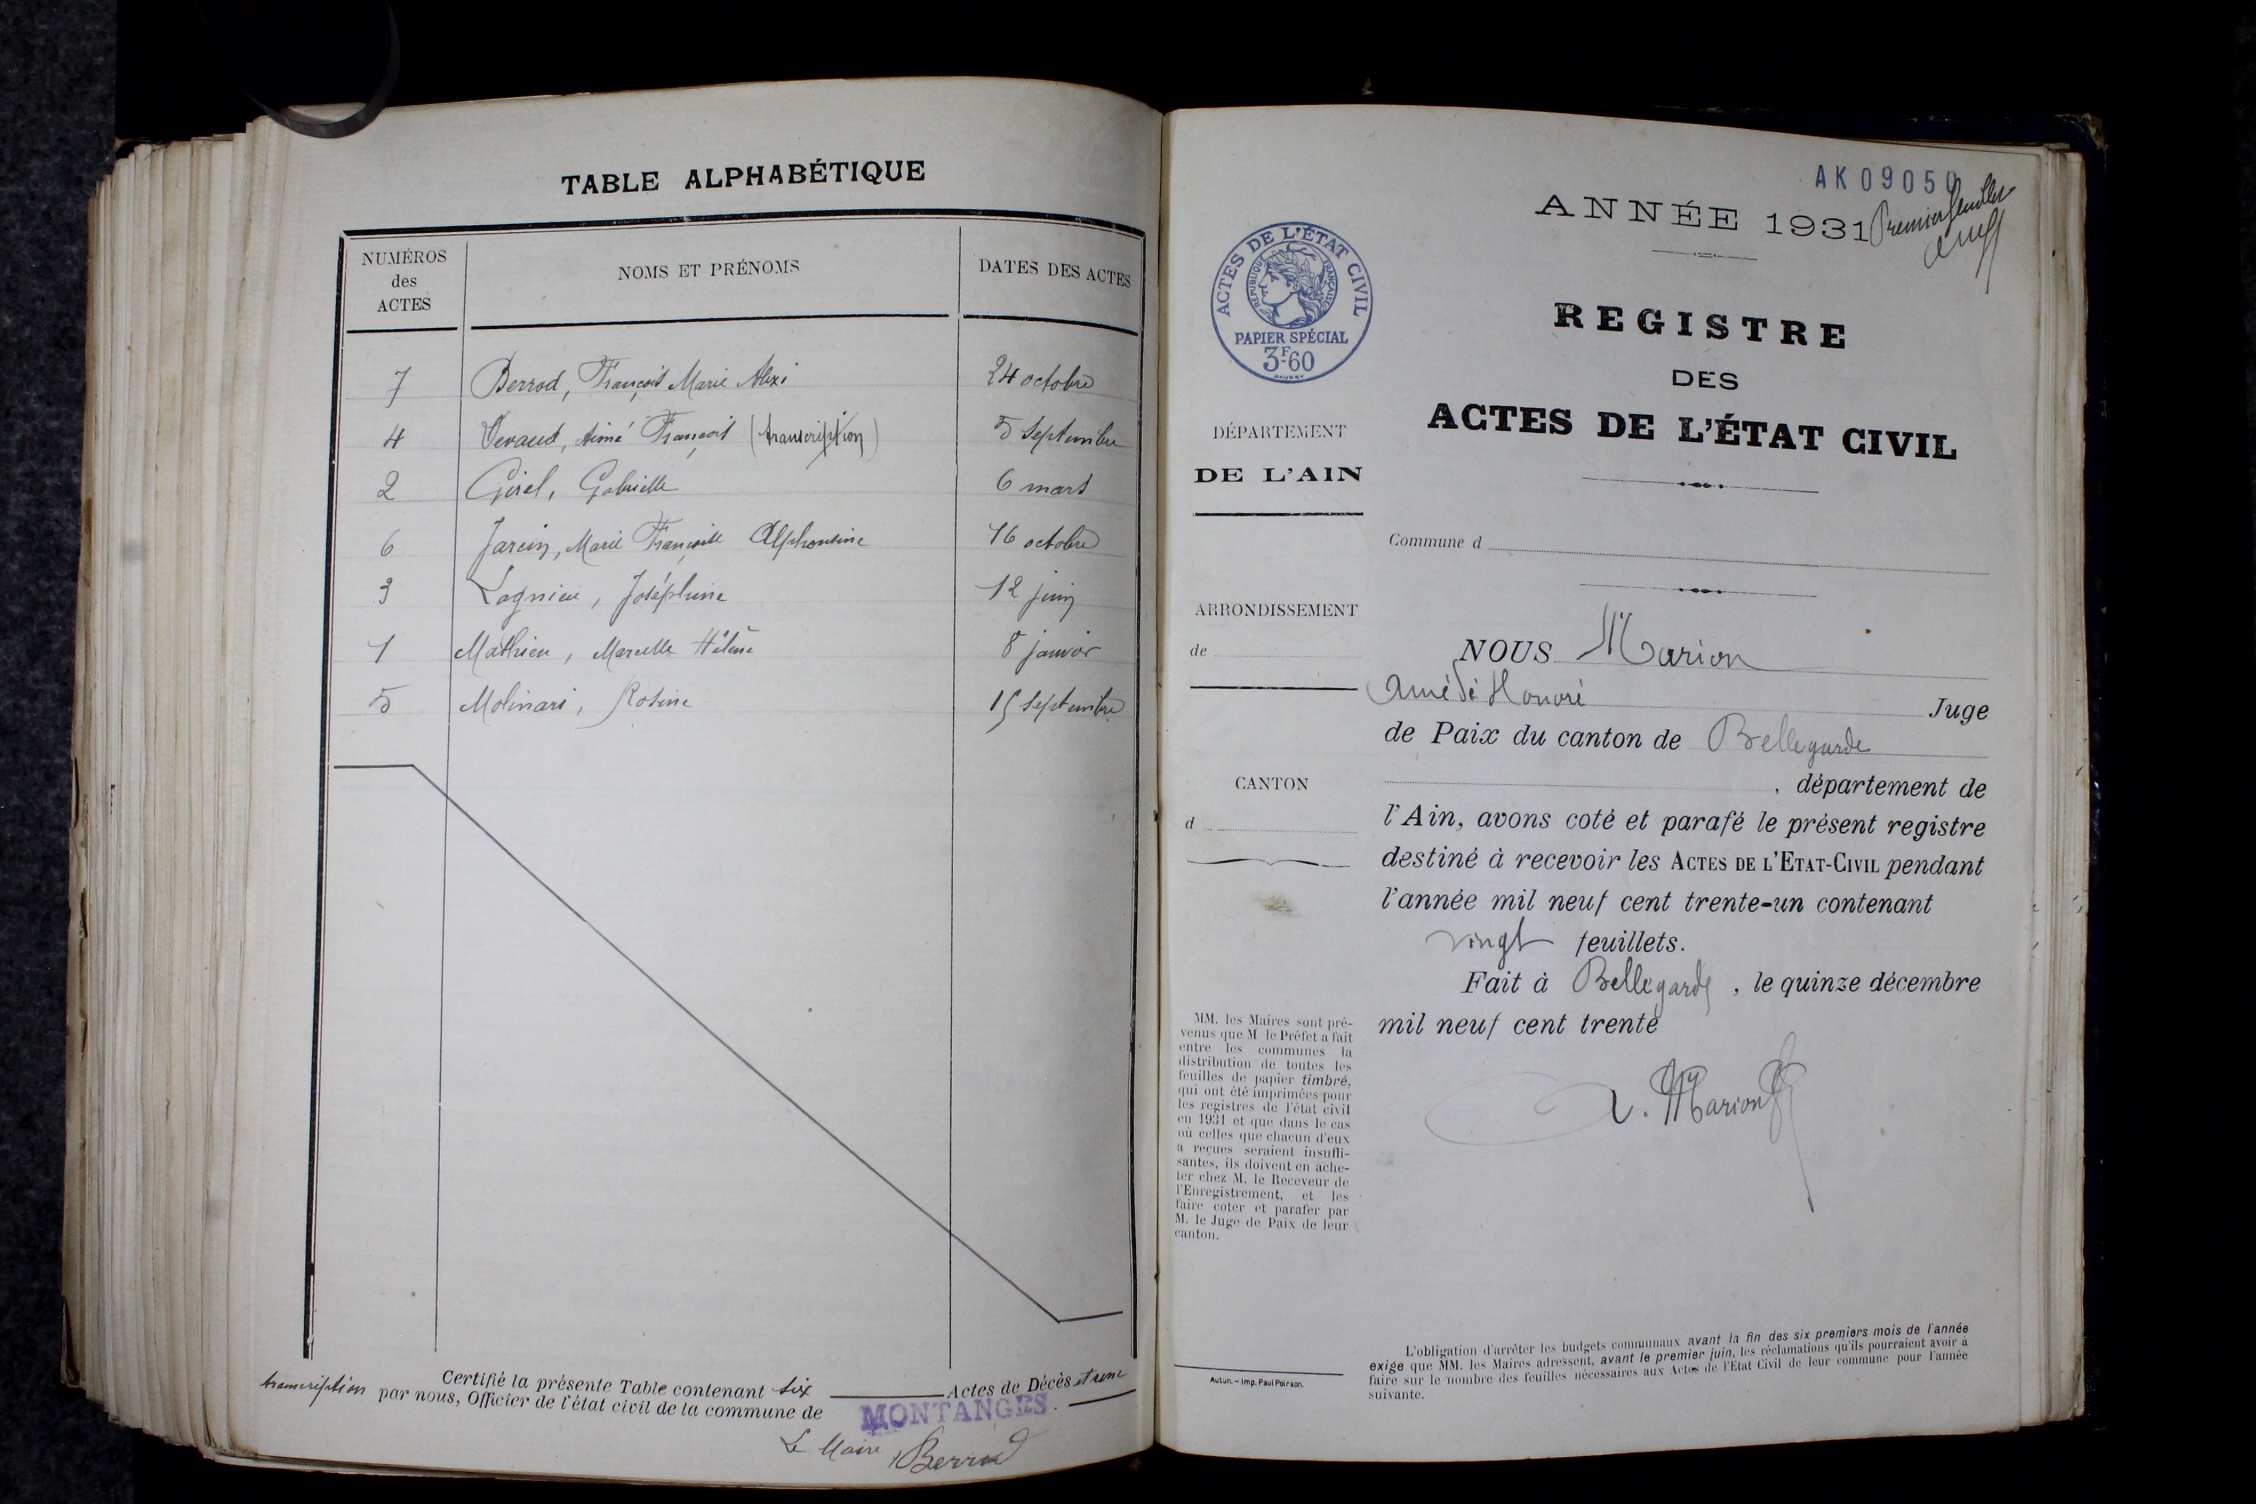 TABLE ALPHABÉTIQUE
NUMÉROS
des
ACTES
NOMS ET PRÉNOMS
DATES DES ACTES
7 Berrod, François Marie Alexi 24 octobre
4 Aimé François (transcription) 5 septembre
2 Girel, Gabrielle 6 mars
6 Marie Françoise Alphonsine 16 octobre
3 Lagnieu, Joséphine 12 juin
1 Mathieu, Marcelle Hélène 8 janvier
5 Molinari, Rosine 15 septembre
Certifié la présente Table contenant six Actes de Décès et une
transcription par nous, Officier de l'état civil de la commune de MONTANGES.
Le Maire, Berrod
AK 09050
ANNÉE 1931 Premier feuillet
ACTES DE L'ÉTAT CIVIL
RÉPUBLIQUE FRANÇAISE
PAPIER SPÉCIAL
3F60
REGISTRE
DES
ACTES DE L'ÉTAT CIVIL
DÉPARTEMENT
DE L'AIN
Commune d
ARRONDISSEMENT
de
CANTON
d
NOUS Marion
Amédé Honoré Juge
de Paix du canton de Bellegarde
, département de
l'Ain, avons coté et parafé le présent registre
destiné à recevoir les ACTES DE L'ETAT-CIVIL pendant
l'année mil neuf cent trente-un contenant
vingt feuillets.
Fait à Bellegarde, le quinze décembre
mil neuf cent trente
Marion
MM. les Maires sont pré-
venus que M le Préfet a fait
entre les communes la
distribution de toutes les
feuilles de papier timbré,
qui ont été imprimées pour
les registres de l'état civil
en 1931 et que dans le cas
où celles que chacun d'eux
a reçues seraient insuffi-
santes, ils doivent en ache-
ter chez M. le Receveur de
l'Enregistrement, et les
faire coter et parafer par
M. le Juge de Paix de leur
canton.
Autun. – Imp. Paul Poirson.
L'obligation d'arrêter les budgets communaux avant la fin des six premiers mois de l'année
exige que MM. les Maires adressent, avant le premier juin, les réclamations qu'ils pourraient avoir à
faire sur le nombre des feuilles nécessaires aux Actes de l'Etat Civil de leur commune pour l'année
suivante.